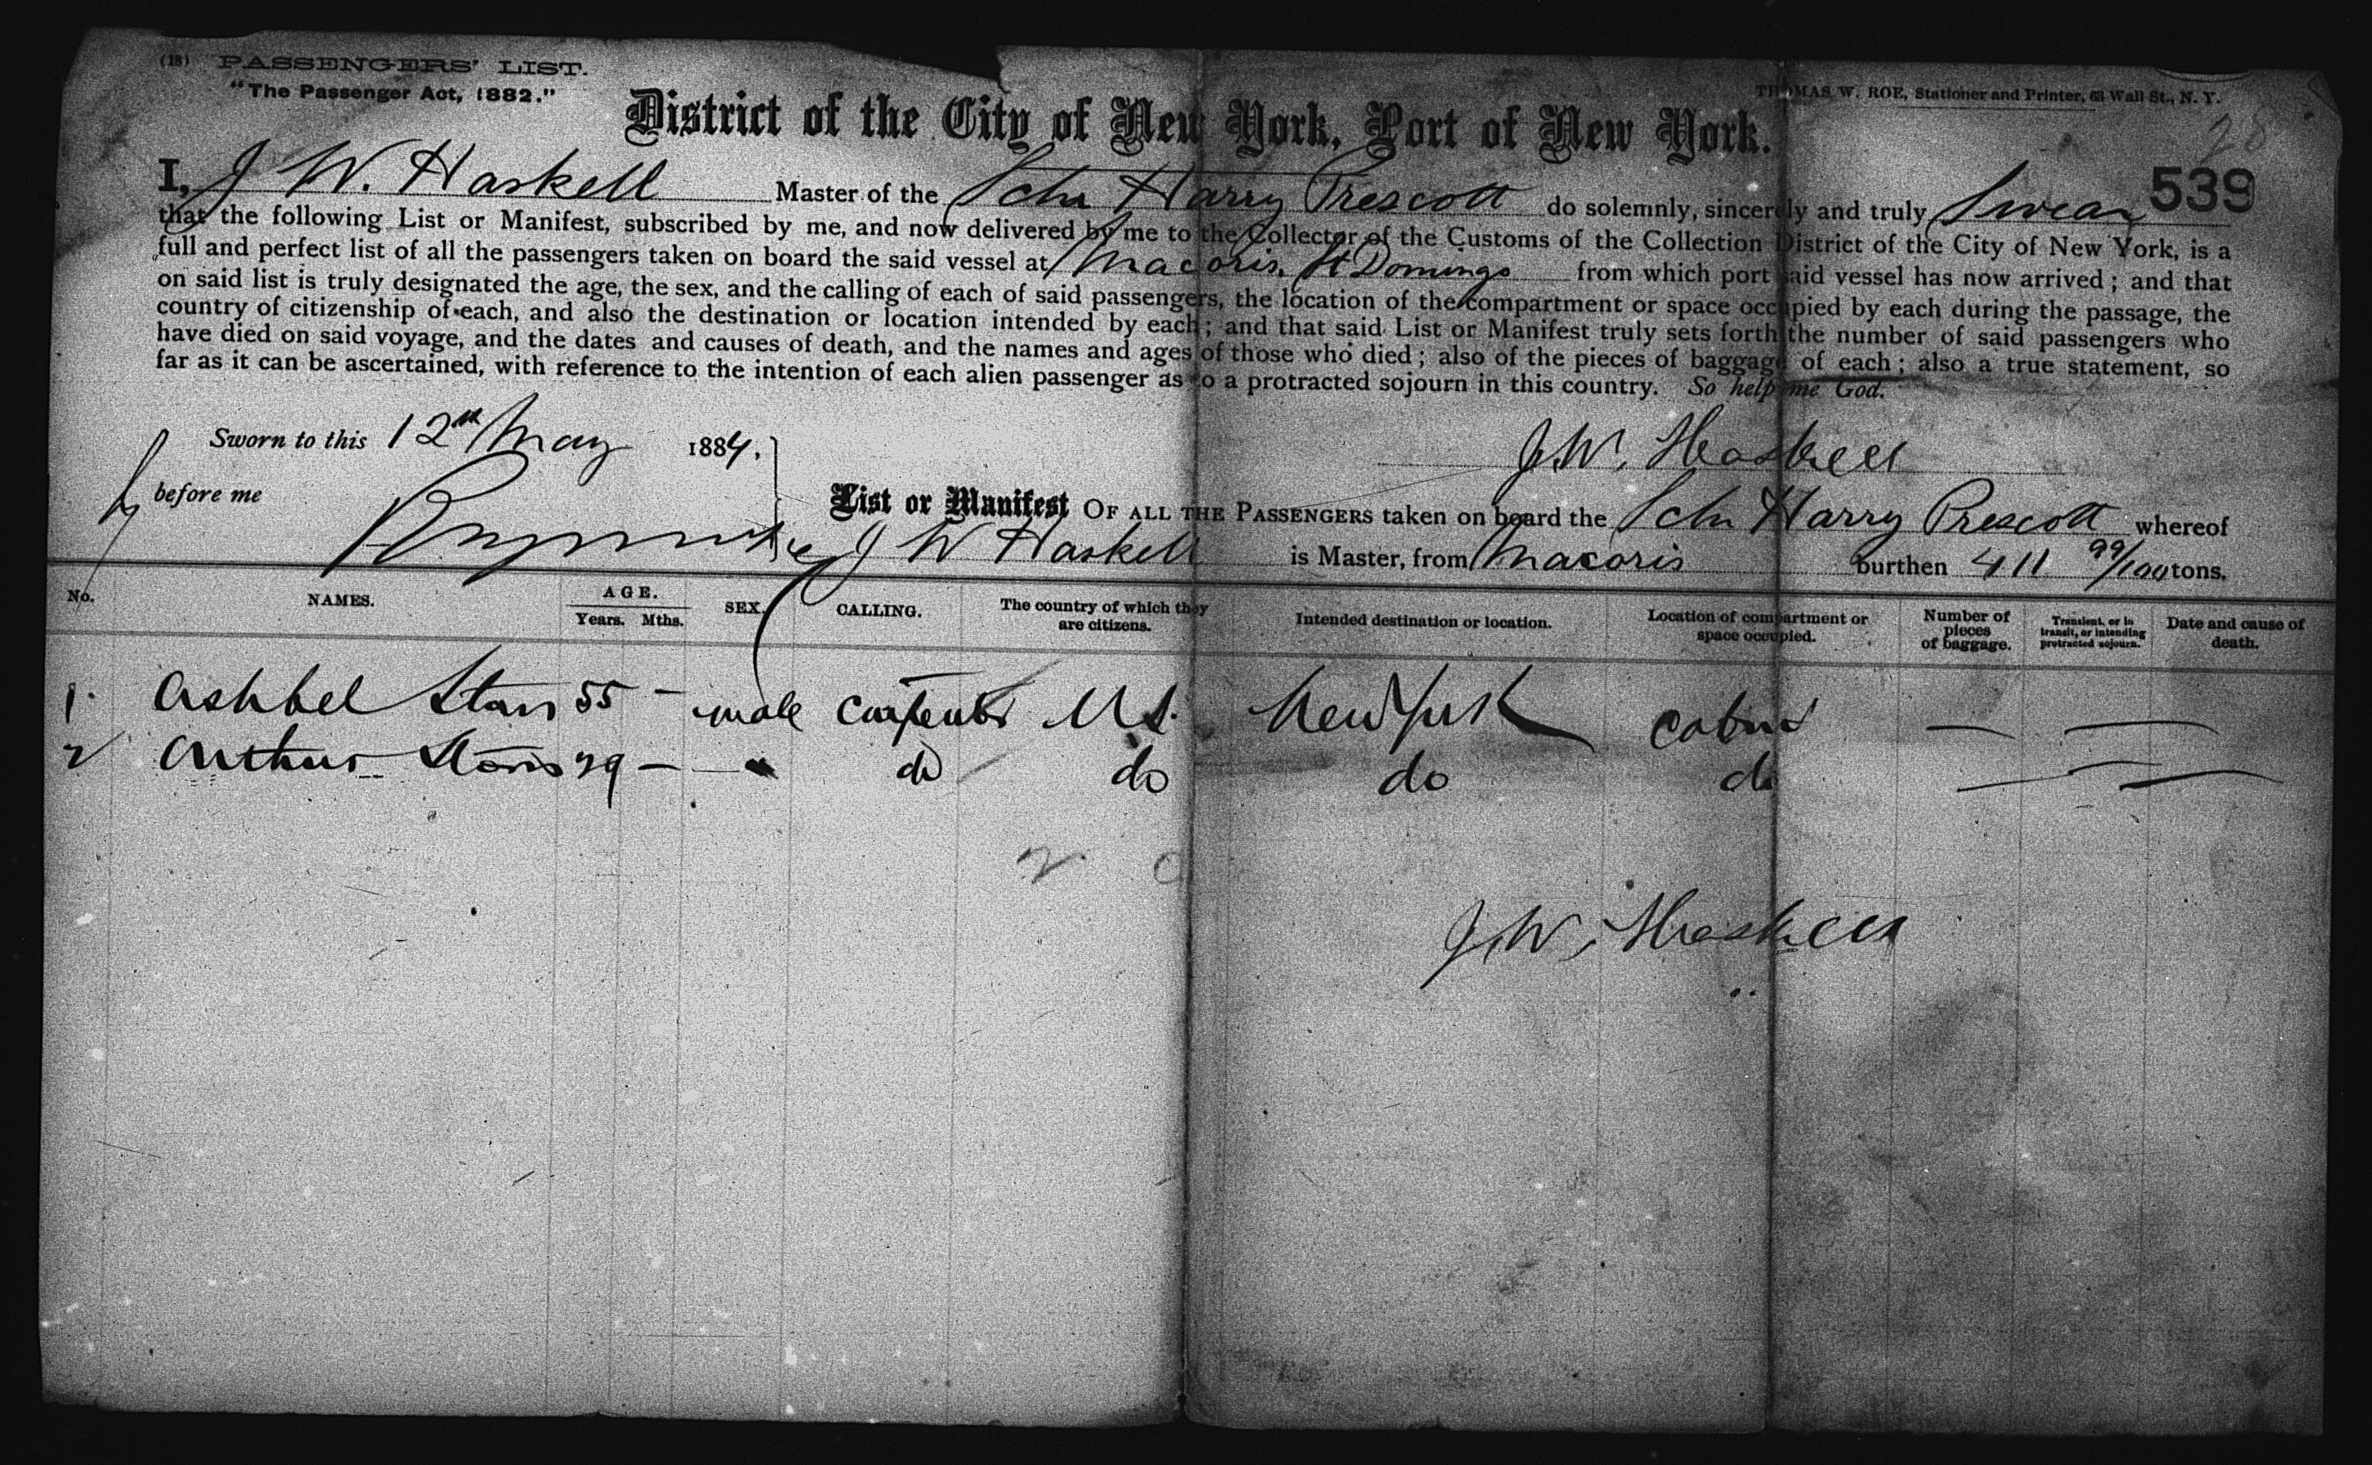 (18) PASSENGERS' LIST.
"The Passenger Act, 1882."
THOMAS W. ROE, Stationer and Printer, Wall St., N. Y.
District of the City of New York, Port of New York.
28
539
I, J W. Haskell Master of the Schr Harry Prescott do solemnly, sincerely and truly Swear
that the following List or Manifest, subscribed by me, and now delivered by me to the Collector of the Customs of the Collection District of the City of New York, is a
full and perfect list of all the passengers taken on board the said vessel at Macoris, St Domingo from which port said vessel has now arrived; and that
on said list is truly designated the age, the sex, and the calling of each of said passengers, the location of the compartment or space occupied by each during the passage, the
country of citizenship of each, and also the destination or location intended by each; and that said List or Manifest truly sets forth the number of said passengers who
have died on said voyage, and the dates and causes of death, and the names and ages of those who died; also of the pieces of baggage of each; also a true statement, so
far as it can be ascertained, with reference to the intention of each alien passenger as to a protracted sojourn in this country. So help me God.
Sworn to this 12th May 1884.
J.W. Haskell
before me
List or Manifest OF ALL THE PASSENGERS taken on board the Schr Harry Prescott whereof
J W Haskell is Master, from Macoris burthen 411 99/100 tons.
No. NAMES. AGE. Years. Mths. SEX. CALLING. The country of which they are citizens. Intended destination or location. Location of compartment or space occupied. Number of pieces of baggage. Transient, or in transit, or intending protracted sojourn. Date and cause of death.
1. Ashbel 55 — male Carpenter U S. New York Cabin — —
2 Arthur 29 — " do do do do — —
2
J.W. Haskell